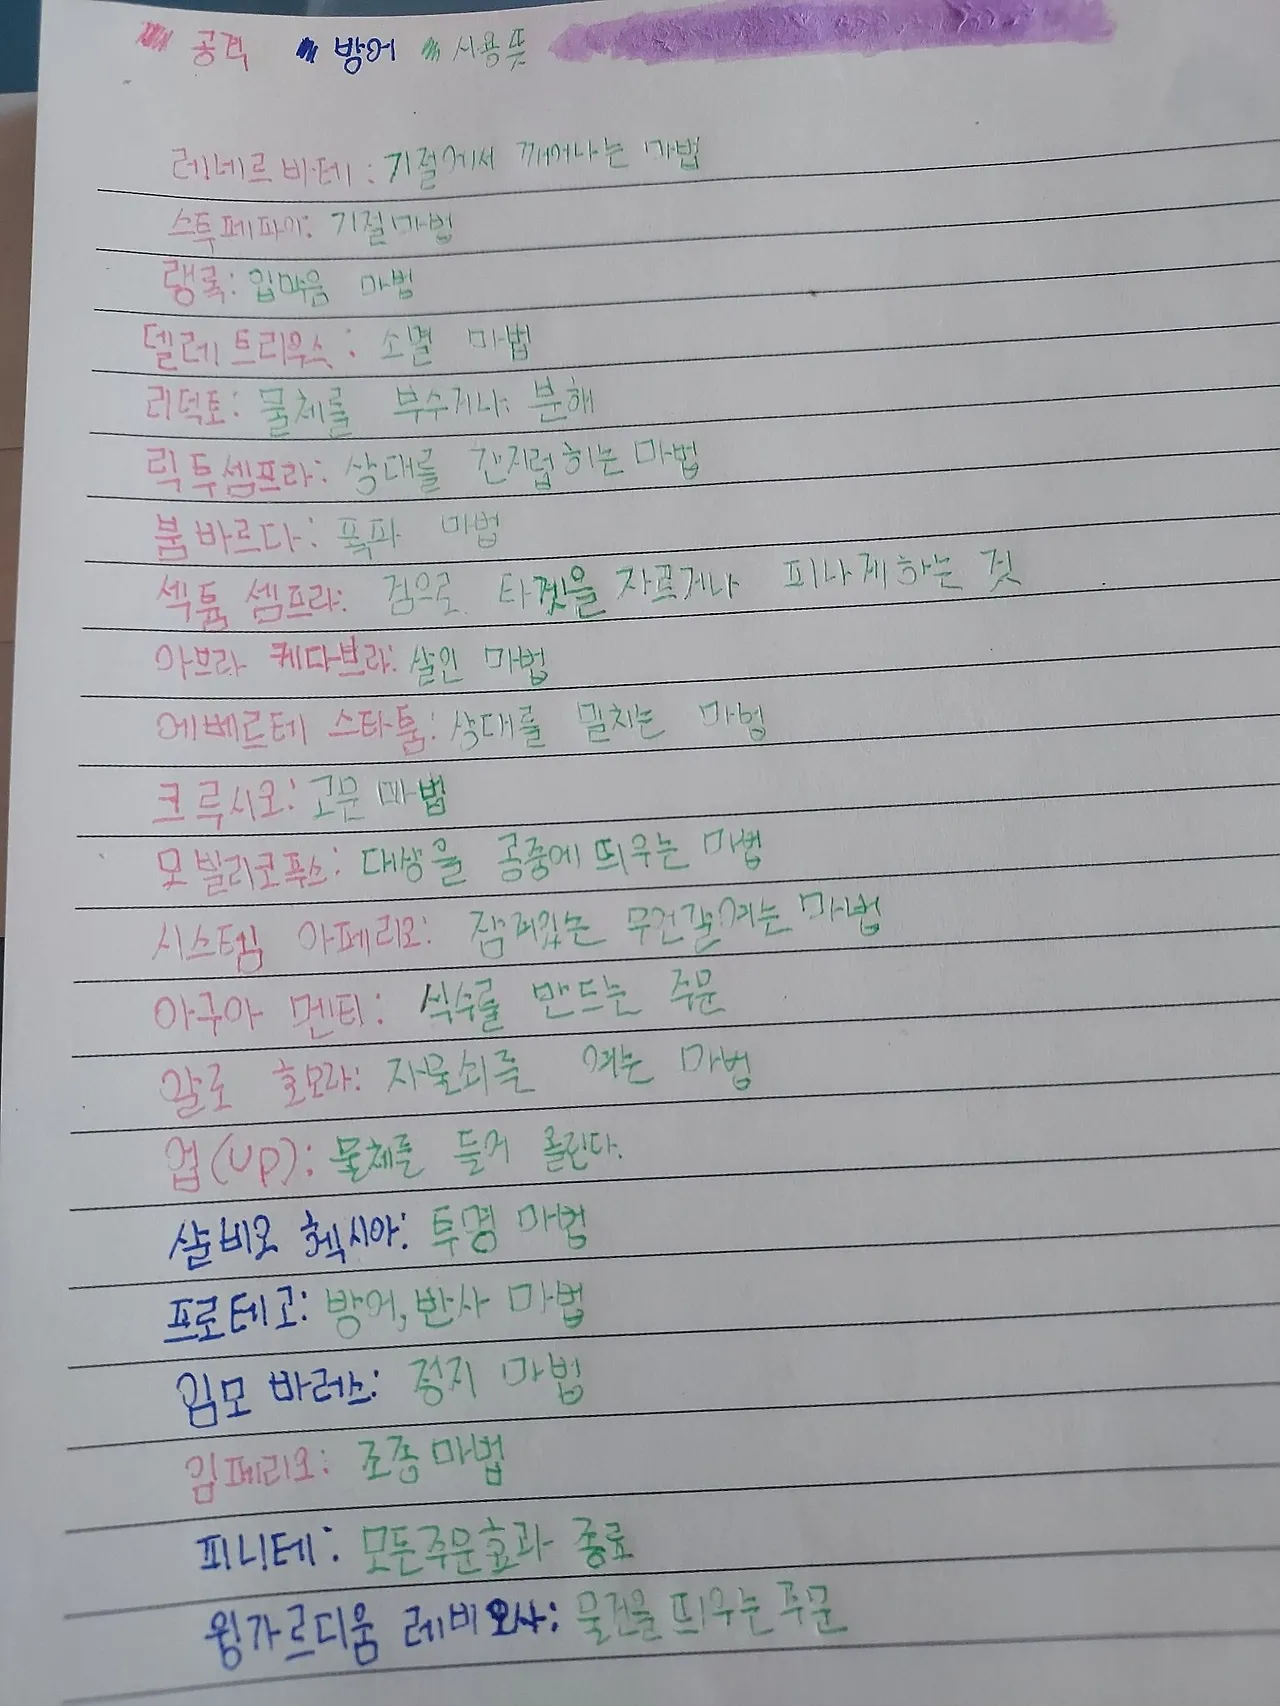 공격 방어 사용풋
레네르바테: 기절에서 깨어나는 마법
스투페파이: 기절마법
랭록: 입막음 마법
델레트리우스: 소멸 마법
리덕토: 물체를 부수거나 분해
릭투셈프라: 상대를 간지럽히는 마법
붐바르다: 폭파 마법
섹튬 셈프라: 검으로 타겟을 자르거나 피나게 하는 것
아브라 케다브라: 살인 마법
에베르테 스타툼: 상대를 밀치는 마법
크루시오: 고문 마법
모빌리코푸스: 대상을 공중에 띄우는 마법
시스템 아페리오: 잠겨있는 무건을여는 마법
아구아 멘티: 식수를 만드는 주문
알로 호모라: 자물쇠를 여는 마법
업(up): 물체를 들어 올린다.
살비오 헥시아: 투명 마법
프로테고: 방어, 반사 마법
임모 바러스: 정지 마법
임페리오: 조종 마법
피니테: 모든주문효과 종료
윙가르디움 레비오사: 물건을 띄우는 주문